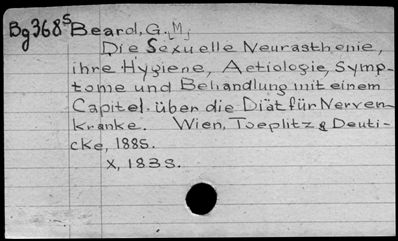 Bg368S Beard, G. [M]
Die Sexuelle Neurasthenie,
ihre Hygiene, Aetiologie, Symp-
tome und Behandlung mit einem
Capitel über die Diät für Nerven-
kranke. Wien, Toeplitz & Deuti-
cke, 1885.
X, 183 S.